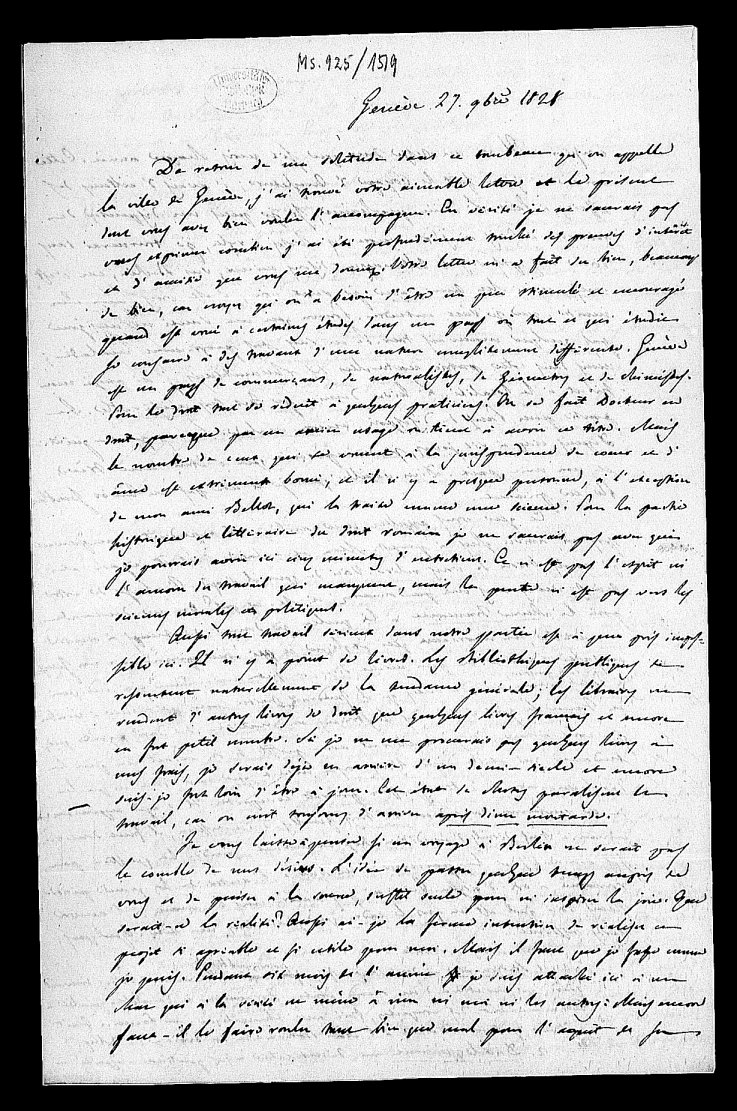 Ms. 925/1519
Universitäts Bibliothek Marburg
Genève 27. 9bre 1828
De retour de ma solitude dans ce tombeau qu'on appelle
la ville de Genève, j'ai trouvé votre aimable lettre et le présent
dont vous avez bien voulu l'accompagner. En vérité je ne saurais pas
vous exprimer combien j'ai été profondément touché des preuves d'intérêt
et d'amitié que vous me donnez. Votre lettre m'a fait du bien, beaucoup
de bien, car croyez qu'on a besoin d'être un peu stimulé et encouragé
quand est voué à certaines études dans un pays où tout ce qui étudie
se consacre à des travaux d'une nature complètement différente. Genève
est un pays de commerçans, de naturalistes, de Géomètres et de Chimistes.
Pour le droit tout se réduit à quelques praticiens. On se fait Docteur en
droit, parceque par un ancien usage on tient à avoir ce titre. Mais
le nombre de ceux qui se vouent à la jurisprudence de coeur et d'
âme est extrêmement borné; et il n'y a presque personne, à l'exception
de mon ami Bellot, qui la traite comme une science. Pour la partie
historique et littéraire du droit romain je ne saurais pas avec qui
je pourrais avoir ici cinq minutes d'entretien. Ce n'est pas l'esprit ni
l'amour du travail qui manquent, mais la pente n'est pas vers les
sciences morales et politiques.
Aussi tout travail sérieux dans notre partie est à peu près impos-
sible ici. Il n'y a point de livres. Les Bibliothèques publiques se
ressentent naturellement de la tendance générale; les libraires ne
vendent d'autres livres de droit que quelques livres français et encore
en fort petit nombre. Si je ne me procurais pas quelques livres à
mes frais, je serais déjà en arrière d'un demi-siècle et encore
suis-je fort loin d'être à jour. Cet état de choses paralyse le
travail, car on croit toujours d'arriver après dîner
Je vous laisse à penser si un voyage à Berlin ne serait pas
le comble de mes désirs. L'idée de passer quelque temps auprès de
vous et de puiser à la source, suffit seule pour m'inspirer la joie. Que
serait-ce la réalité? Aussi ai-je la ferme intention de réaliser ce
projet si agréable et si utile pour moi. Mais il faut que je fasse comme
je puis. Pendant dix mois de l'année je suis attaché ici à un
char qui à la vérité ne mène à rien ni moi ni les autres: Mais encore
faut-il le faire rouler tant bien que mal pour l'acquit de sa